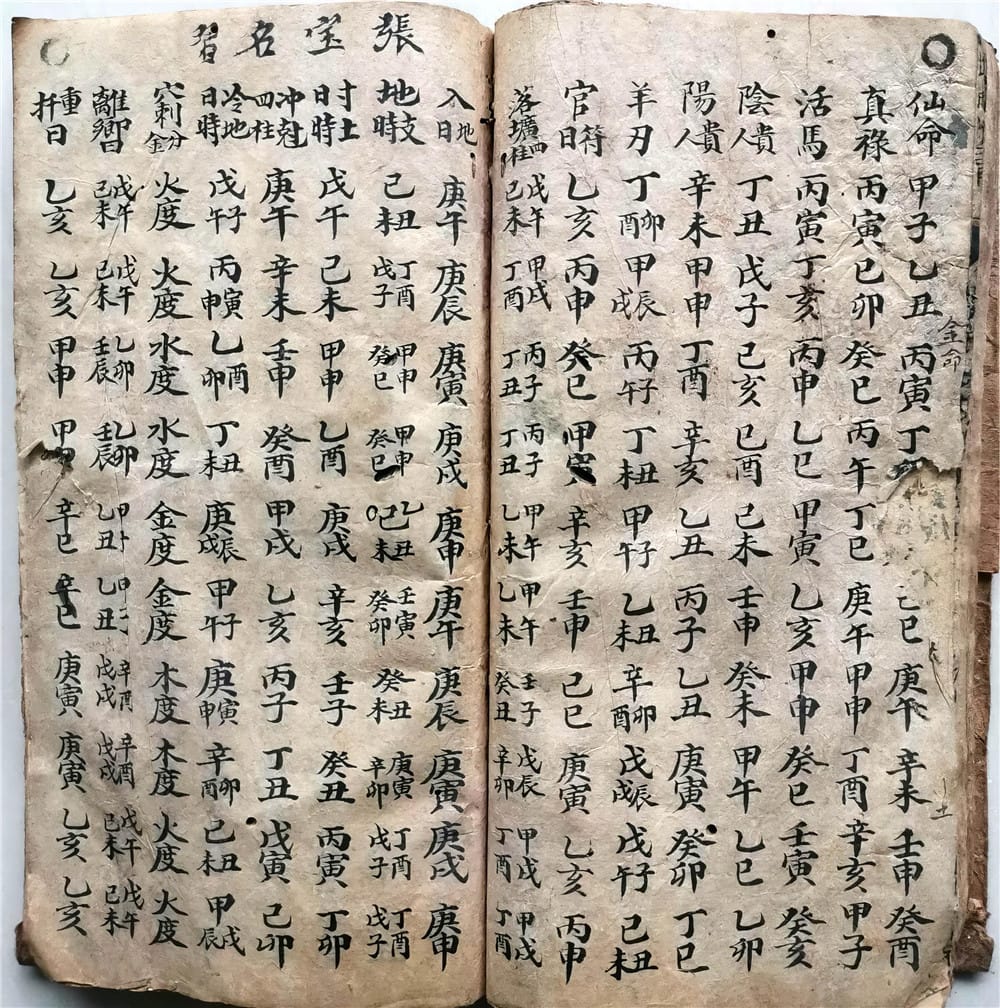 張宝名
仙命 甲子 乙丑 丙寅 丁 己巳 庚午 辛未 壬申 癸酉
金命
土
真祿 丙寅 己卯 癸巳 丙午 丁巳 庚午 甲申 丁酉 辛亥 甲子
活馬 丙寅 丁亥 丙申 乙巳 甲寅 乙亥 甲申 癸巳 壬寅 癸亥
陰貴人 丁丑 戊子 己亥 己酉 己未 壬申 癸未 甲午 乙巳 乙卯
陽貴人 辛未 甲申 丁酉 辛亥 乙丑 丙子 乙丑 庚寅 癸卯 丁巳
羊刃 丁卯酉 甲辰戌 丙子午 丁丑未 甲子午 乙丑未 辛卯酉 戊辰戌 戊子午 己丑未
官符日 乙亥 丙申 癸巳 甲寅 辛亥 壬申 己巳 庚寅 乙亥 丙申
落壙四柱 戊午己未 甲戌丁酉 丙子丁丑 丙子丁丑 甲午乙未 甲午乙未 壬子癸丑 戊辰辛卯 甲戌丁酉 甲戌丁酉
入地日 庚午 庚辰 庚寅 庚戌 庚申 庚午 庚辰 庚寅 庚戌 庚申
地支時 己丑未 丁酉戊子 甲申癸巳 甲申癸巳 乙丑己未 壬寅癸卯 癸丑未 庚寅辛卯 丁酉戊子 丁酉戊子
寸土日時 戊午 己未 甲申 乙酉 庚戌 辛亥 壬子 癸丑 丙寅 丁卯
冲尅四柱 庚午 辛未 壬申 癸酉 甲戌 乙亥 丙子 丁丑 戊寅 己卯
冷地日時 戊子午 丙寅申 乙酉卯 丁丑未 庚辰戌 甲子午 庚寅申 辛卯酉 己丑未 甲戌辰
穴刺分金 火度 火度 水度 水度 金度 金度 木度 木度 火度 火度
離鄉日 戊午己未 戊午己未 乙卯壬辰 乙卯壬辰 甲子乙丑 甲子乙丑 辛酉戊戌 辛酉戊戌 戊午己未 戊午己未
重扦日 乙亥 乙亥 甲申 甲申 辛巳 辛巳 庚寅 庚寅 乙亥 乙亥